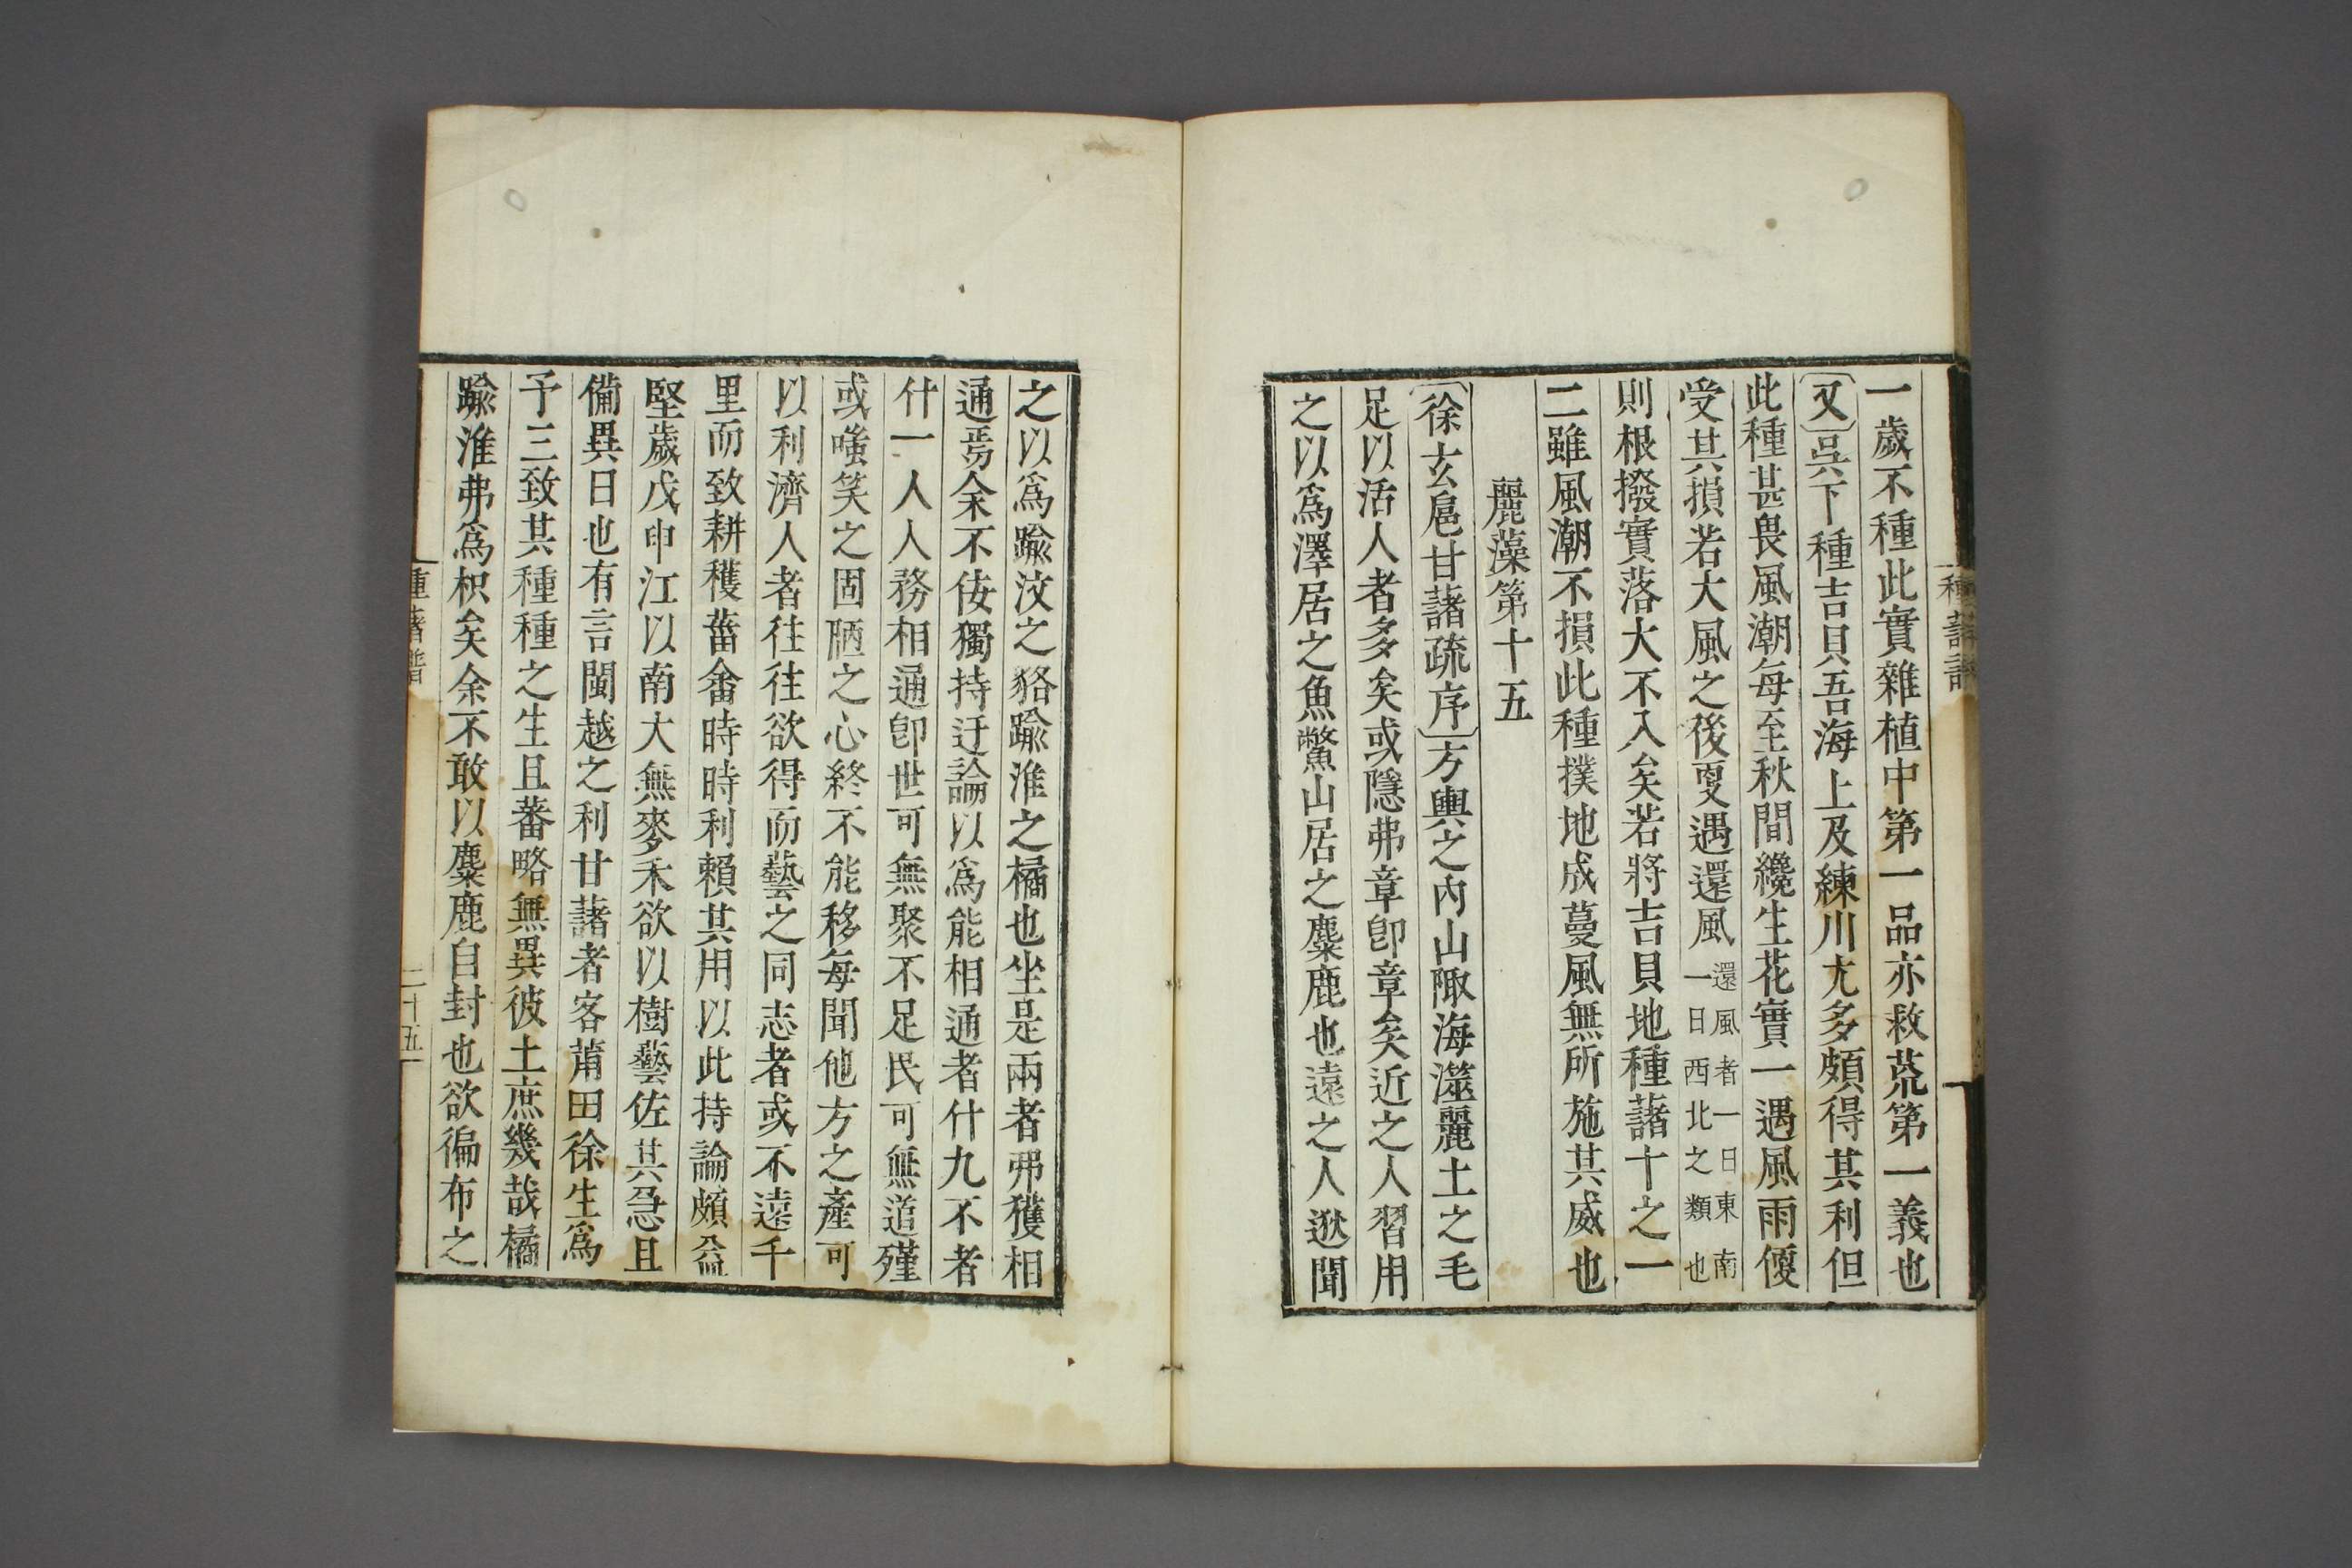 一歲不種此實雜植中第一品亦救荒第一義也
又吳下種吉貝吾海上及練川尤多頗得其利但
此種甚畏風潮每至秋間纔生花實一遇風雨便
受其損若大風之後更遇還風還風者一日東南一日西北之類也
則根撥實落大不入矣若將吉貝地種藷十之一
二雖風潮不損此種撲地成蔓風無所施其威也
麗藻第十五
徐玄扈甘藷疏序方輿之內山陬海澨麗土之毛
足以活人者多矣或隱弗章卽章矣近之人習用
之以爲澤居之魚鱉山居之麋鹿也遠之人逖聞
之以爲踰汶之貉踰淮之橘也坐是兩者弗獲相
通焉余不佞獨持迂論以爲能相通者什九不者
什一人人務相通卽世可無聚不足民可無道殣
或嗤笑之固陋之心終不能移每聞他方之產可
以利濟人者往往欲得而藝之同志者或不遠千
里而致耕穫菑畬時時利賴其用以此持論頗益
堅歲戊申江以南大無麥禾欲以樹藝佐其急且
備異日也有言閩越之利甘藷者客莆田徐生爲
予三致其種種之生且蕃略無異彼土庶幾哉橘
踰淮弗爲枳矣余不敢以麋鹿自封也欲徧布之
二十五